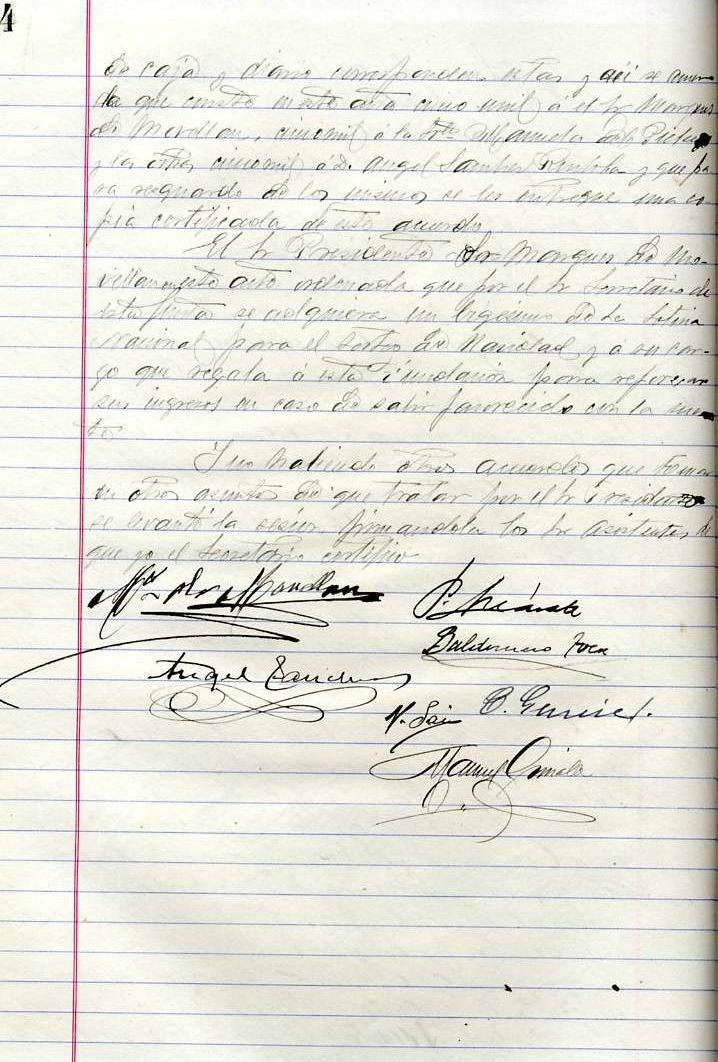 4
de caja y diario corresponden estas y así se acuer
da que conste en esta acta cinco mil á el Sr Marques
de Movellan, cinco mil á la Srta Manuela de la
y las otras cinco mil á D. Angel Sanchez y que pa
ra resguardo de los mismos se les entregue una co-
pia certificada de este acuerdo
El Sr Presidente Sor Marques de Mo-
villan en este acto ordenada que por el Sr Secretario de
esta Junta se adquiera un bigesimo de la Loteria
Nacional para el Sorteo de Navidad y a su car-
go que regala á esta Fundación para reforzar
sus ingresos en caso de salir favorecido con la suer-
te
Y no habiendo otros acuerdos que tomar
ni otros asuntos de que tratar por el Sr Presidente
se levantó la sesión firmandola los Sr Asistentes de
que yo el Secretario certifico
Mqs de Movellan
Baldomero Roca
Angel Sanchez
Manuel